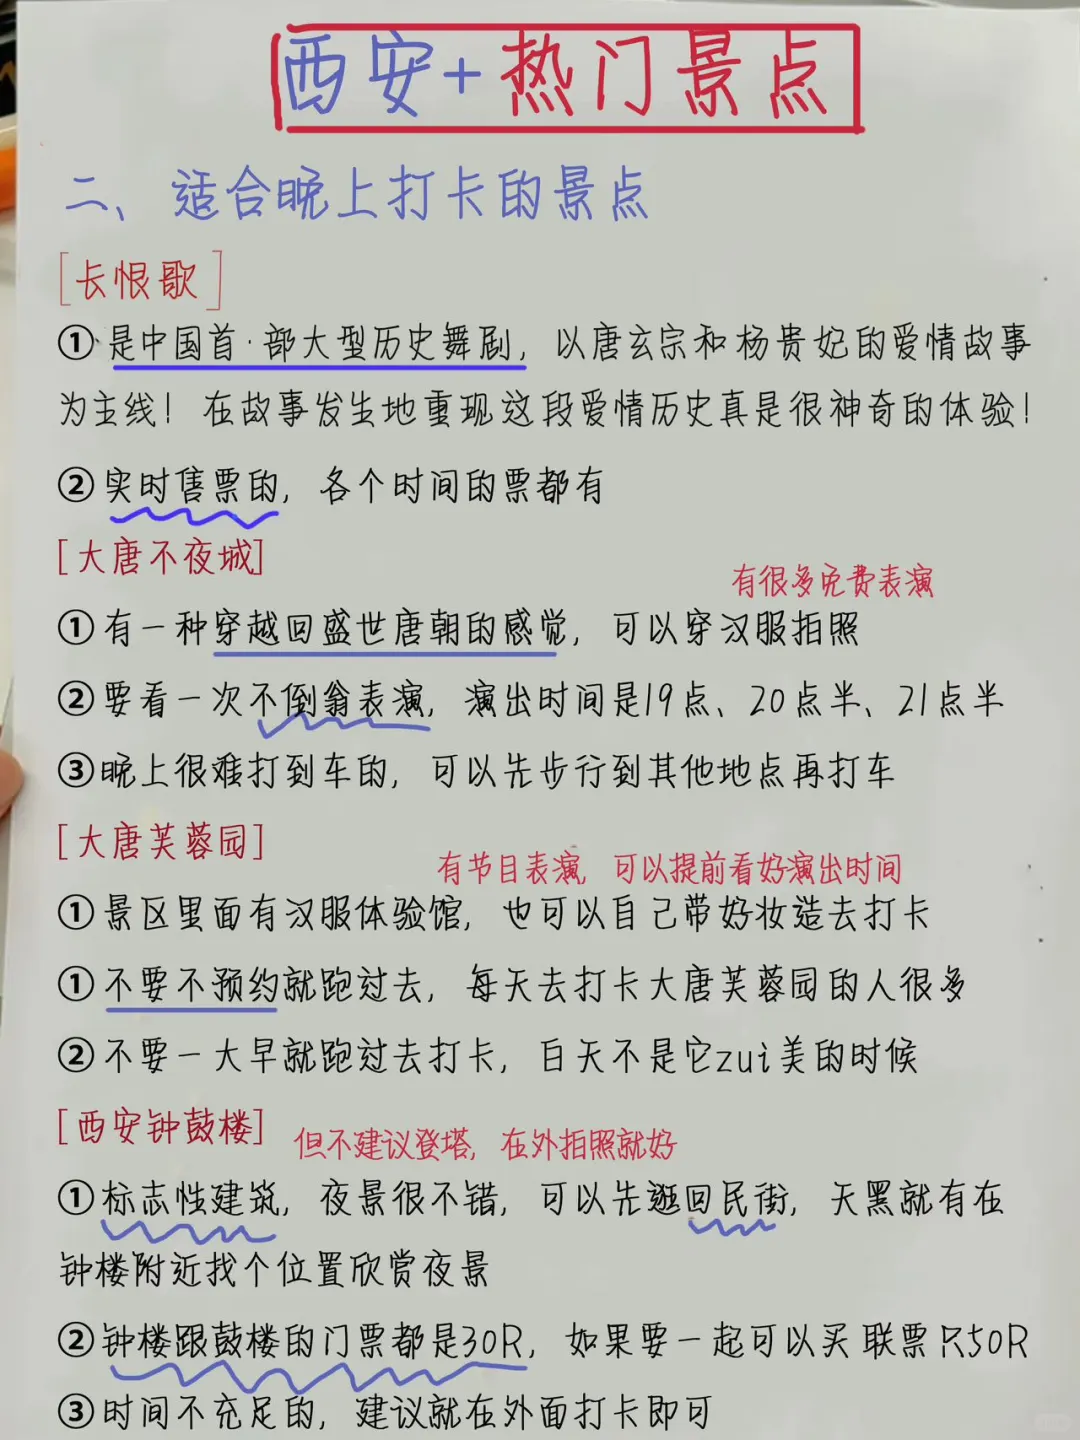 西安+热门景点
二、适合晚上打卡的景点
[长恨歌]
①是中国首·部大型历史舞剧，以唐玄宗和杨贵妃的爱情故事
为主线！在故事发生地重现这段爱情历史真是很神奇的体验！
②实时售票的，各个时间的票都有
[大唐不夜城]
有很多免费表演
①有一种穿越回盛世唐朝的感觉，可以穿汉服拍照
②要看一次不倒翁表演，演出时间是19点、20点半、21点半
③晚上很难打到车的，可以先步行到其他地点再打车
[大唐芙蓉园]
有节目表演，可以提前看好演出时间
①景区里面有汉服体验馆，也可以自己带好妆造去打卡
①不要不预约就跑过去，每天去打卡大唐芙蓉园的人很多
②不要一大早就跑过去打卡，白天不是它zui美的时候
[西安钟鼓楼]
但不建议登塔，在外拍照就好
①标志性建筑，夜景很不错，可以先逛回民街，天黑就有在
钟楼附近找个位置欣赏夜景
②钟楼跟鼓楼的门票都是30R，如果要一起可以买联票只50R
③时间不充足的，建议就在外面打卡即可